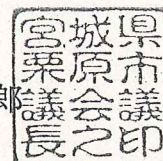 郎
宮城県
栗原市
議会議
長之印